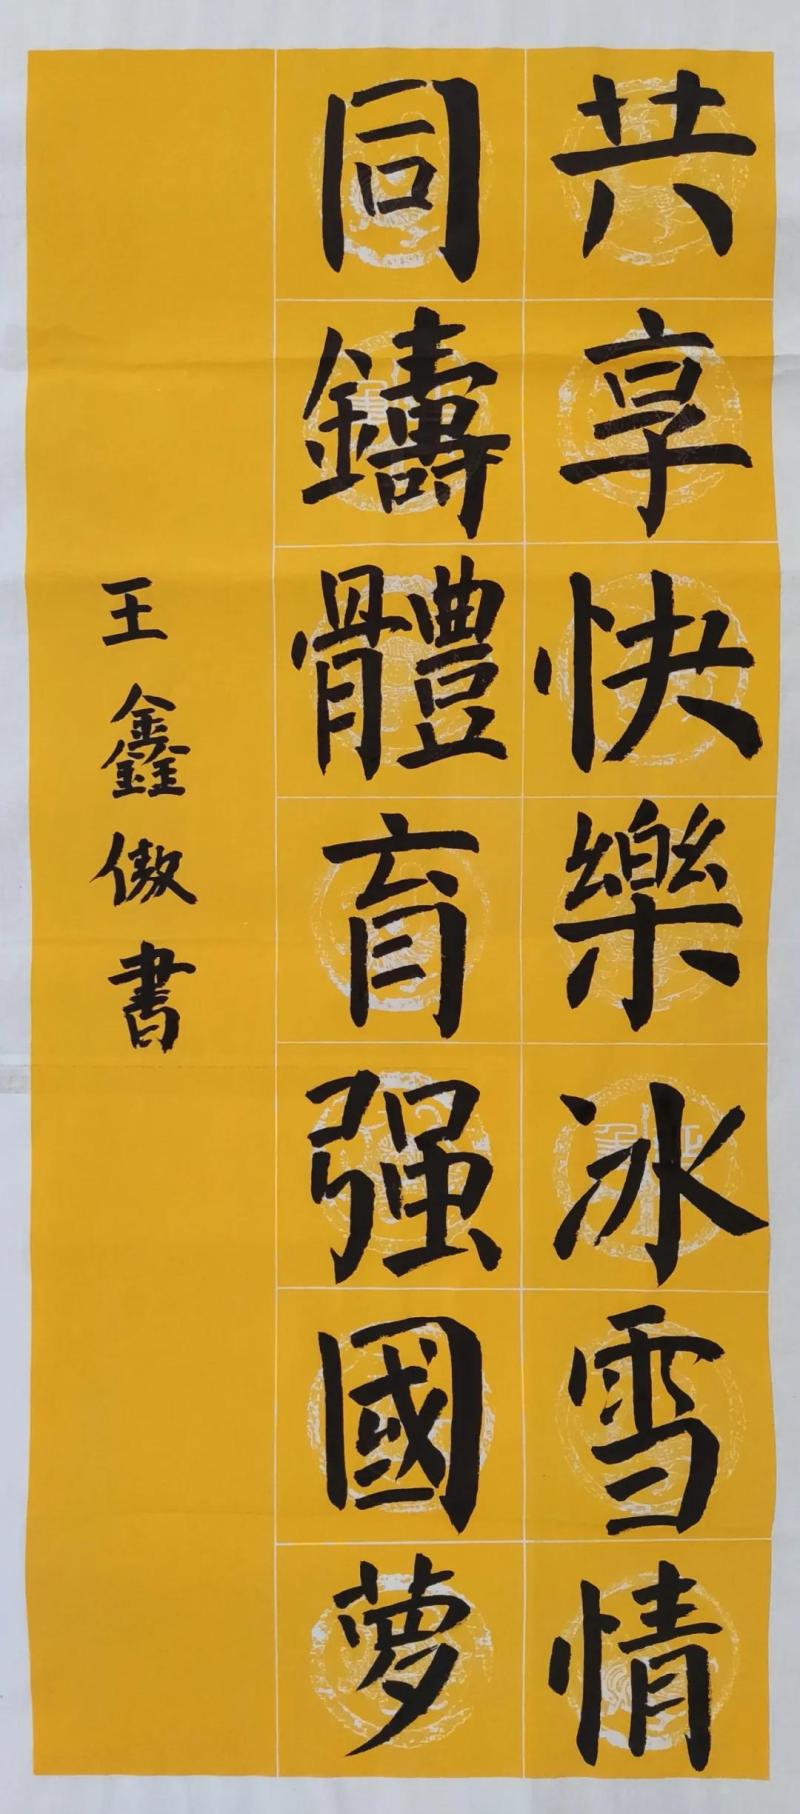 共享快樂冰雪情
同鑄體育强國夢
王鑫傲書